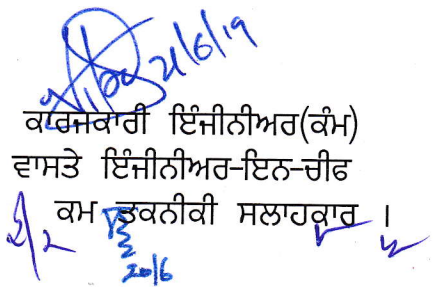 21/6/19
ਕਾਰਜਕਾਰੀ ਇੰਜੀਨੀਅਰ(ਕੰਮ)
ਵਾਸਤੇ ਇੰਜੀਨੀਅਰ-ਇਨ-ਚੀਫ
ਕਮ ਤਕਨੀਕੀ ਸਲਾਹਕਾਰ ।
20/6